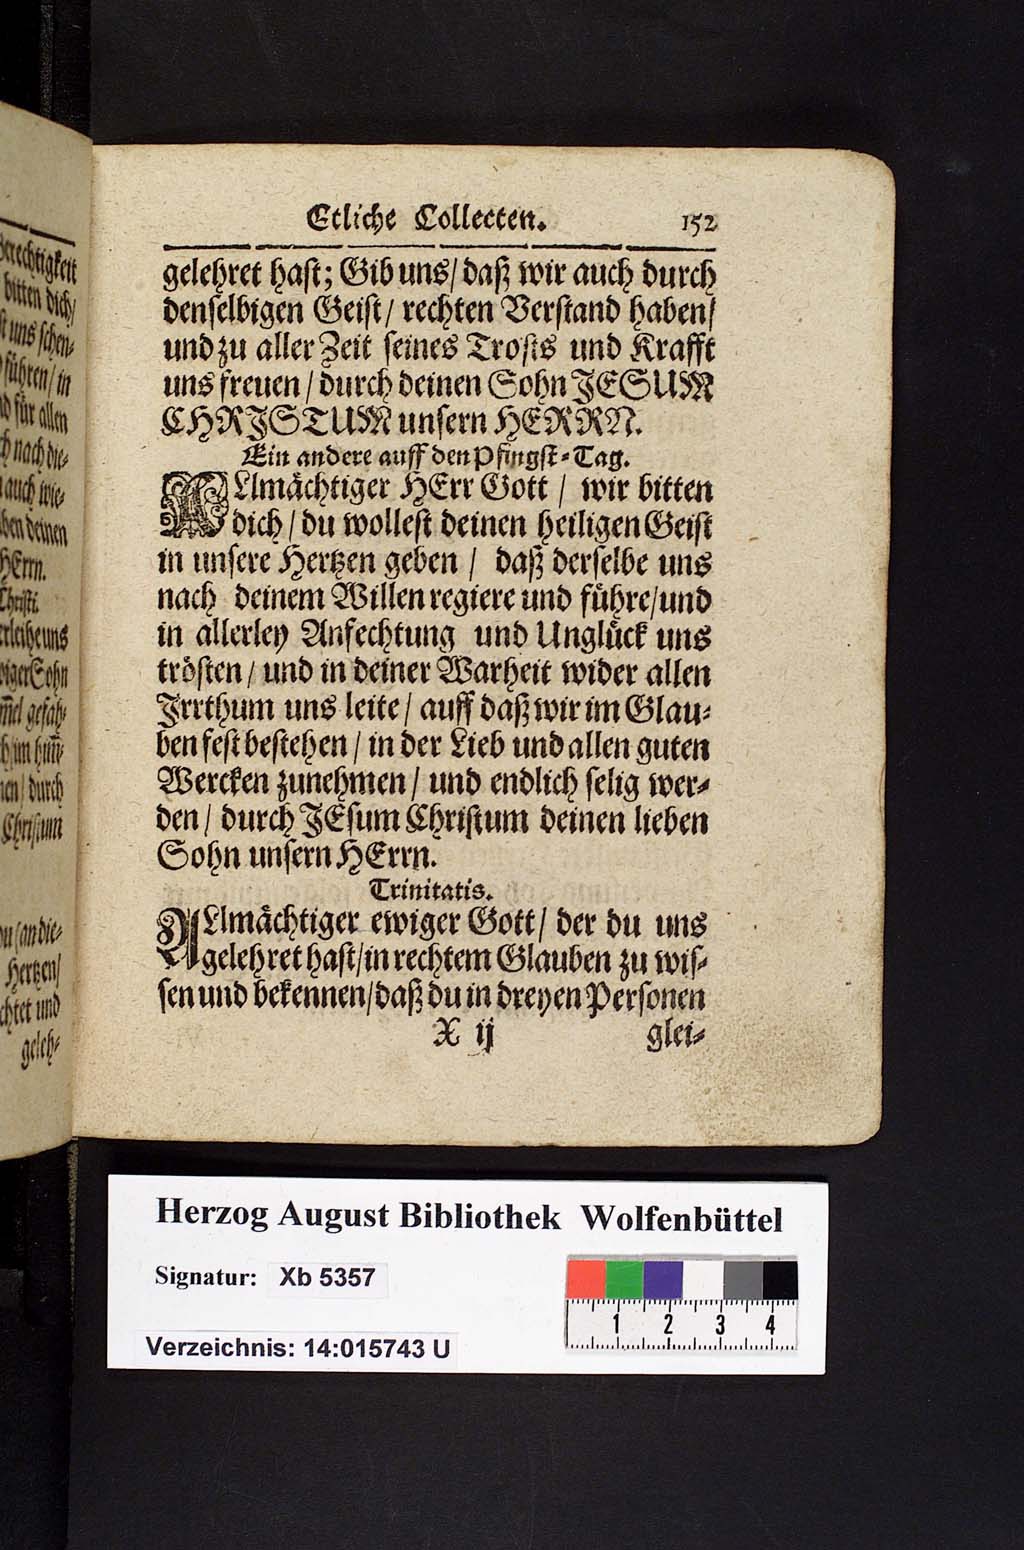 Berechtigkeit
bitten dich/
uns schen-
führen/in
für allen
nach die-
auch wie-
ben deinen
HErrn.
Christi.
verleihe uns
Sohn
gefah-
durch
Christum
du/an die-
Hertzen/
und
geleh-
Etliche Collecten. 152
gelehret hast; Gib uns/daß wir auch durch
denselbigen Geist/ rechten Verstand haben/
und zu aller Zeit seines Trosts und Krafft
uns freuen/durch deinen Sohn JESUM
CHRISTUM unsern HERRN.
Ein andere auff den Pfingst-Tag.
ALlmächtiger HErr Gott/ wir bitten
dich/du wollest deinen heiligen Geist
in unsere Hertzen geben/ daß derselbe uns
nach deinem Willen regiere und führe/und
in allerley Anfechtung und Unglück uns
trösten/und in deiner Warheit wider allen
Irrthum uns leite/auff daß wir im Glau-
ben fest bestehen/in der Lieb und allen guten
Wercken zunehmen/und endlich selig wer-
den/durch JEsum Christum deinen lieben
Sohn unsern HErrn.
Trinitatis.
ALlmächtiger ewiger Gott/der du uns
gelehret hast/in rechtem Glauben zu wis-
sen und bekennen/daß du in dreyen Personen
X ij glei-
Herzog August Bibliothek Wolfenbüttel
Signatur: Xb 5357
Verzeichnis: 14:015743 U
1 2 3 4